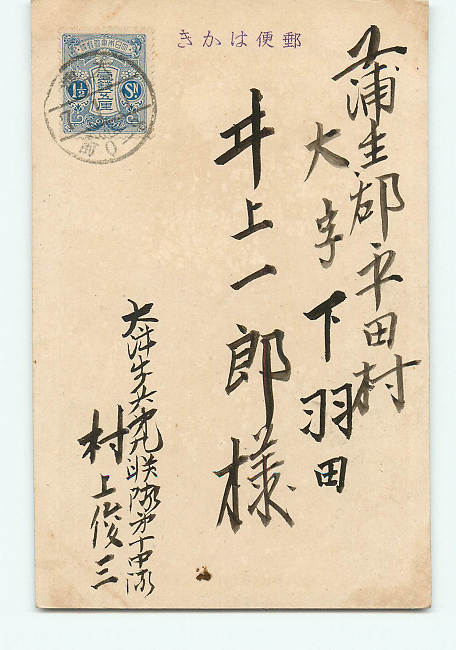 郵便はかき
大日本帝國郵便
壹錢五厘
1½ Sn
蒲生郡平田村
大字下羽田
井上一郎様
大津歩兵第九聯隊第十中隊
村上俊三